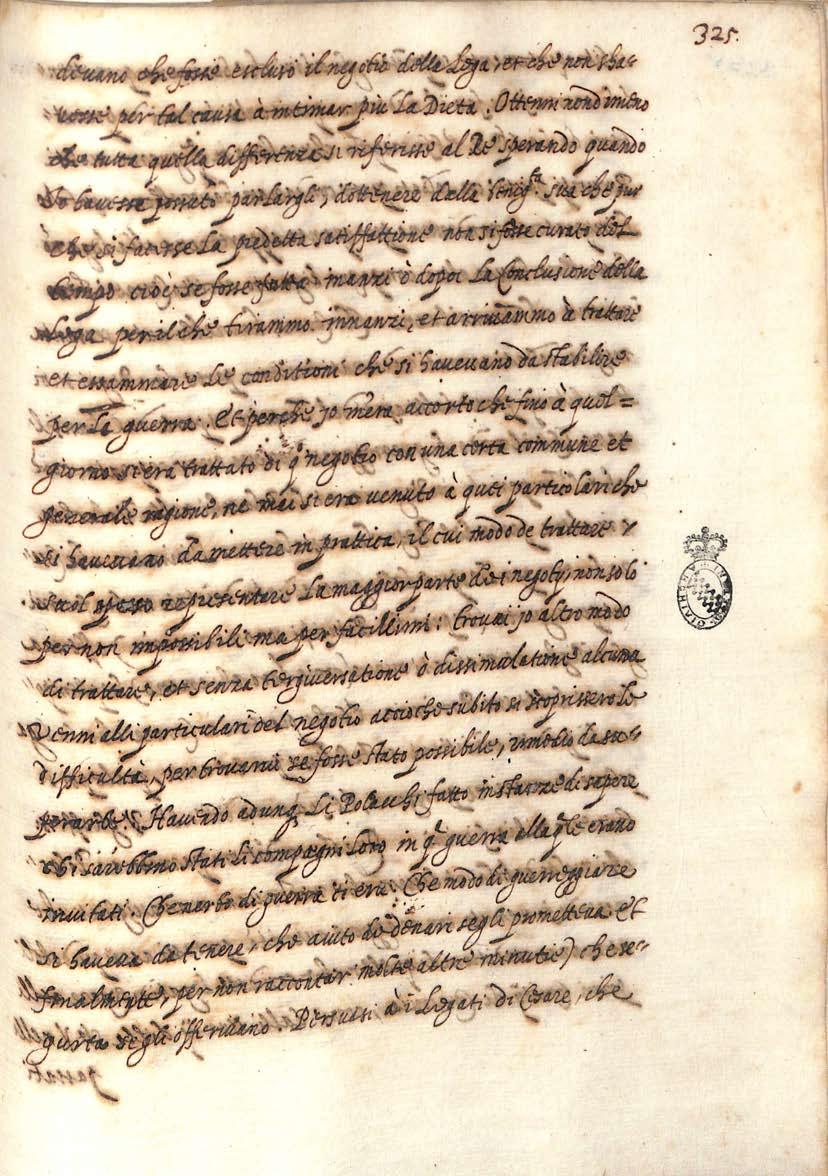 325.
devano che fosse escluso il negotio della Lega, et che non s'ha-
vesse per tal causa à intimar più La Dieta. Ottenni nondimeno
che tutta quella differenza si riferisse al Re sperando quando
Jo havesse possuto parlargli, d'ottenere dalla Seren.ᵗᵃ sua che pur
che si facesse La predetta satisfattione non si fosse curato del
tempo cioè se fosse fatta inanzi ò dopoi La Conclusione della
Lega per il che tirammo innanzi, et arrivammo à trattare
et essaminare Le conditioni che si havevano da stabilire
per La guerra. Et perche jo m'era accorto che fino à quel=
giorno si era trattato di q.º negotio con una certa commune et
generale ragione, ne mai si era venuto à quei particolari che
si havevano da mettere in prattica, il cui modo de trattare
suol spesso representare La maggior parte de i negotij non solo
per non impossibili ma per facillimi: trovai jo altro modo
di trattare, et senza tergiversatione ò dissimulatione alcuna
Venni alli particulari del negotio accioche subito si scoprissero le
difficultà, per trovarvi se fosse stato possibile, rimedio da su=
perarle. Havendo adunq. Li Polacchi fatto instanze di sapere
chi sarebbono stati li compagni Loro in q.ª guerra alla q.le erano
invitati. Che nerbo di guerra ci era. Che modo di guerreggiare
si haveva da tenere, che aiuto de denari se gli prometteva et
finalmente, per non raccontar molte altre minutie) che se-
gurtà se gli offerivano. Persuasi à i Legati di Cesare, che
passati